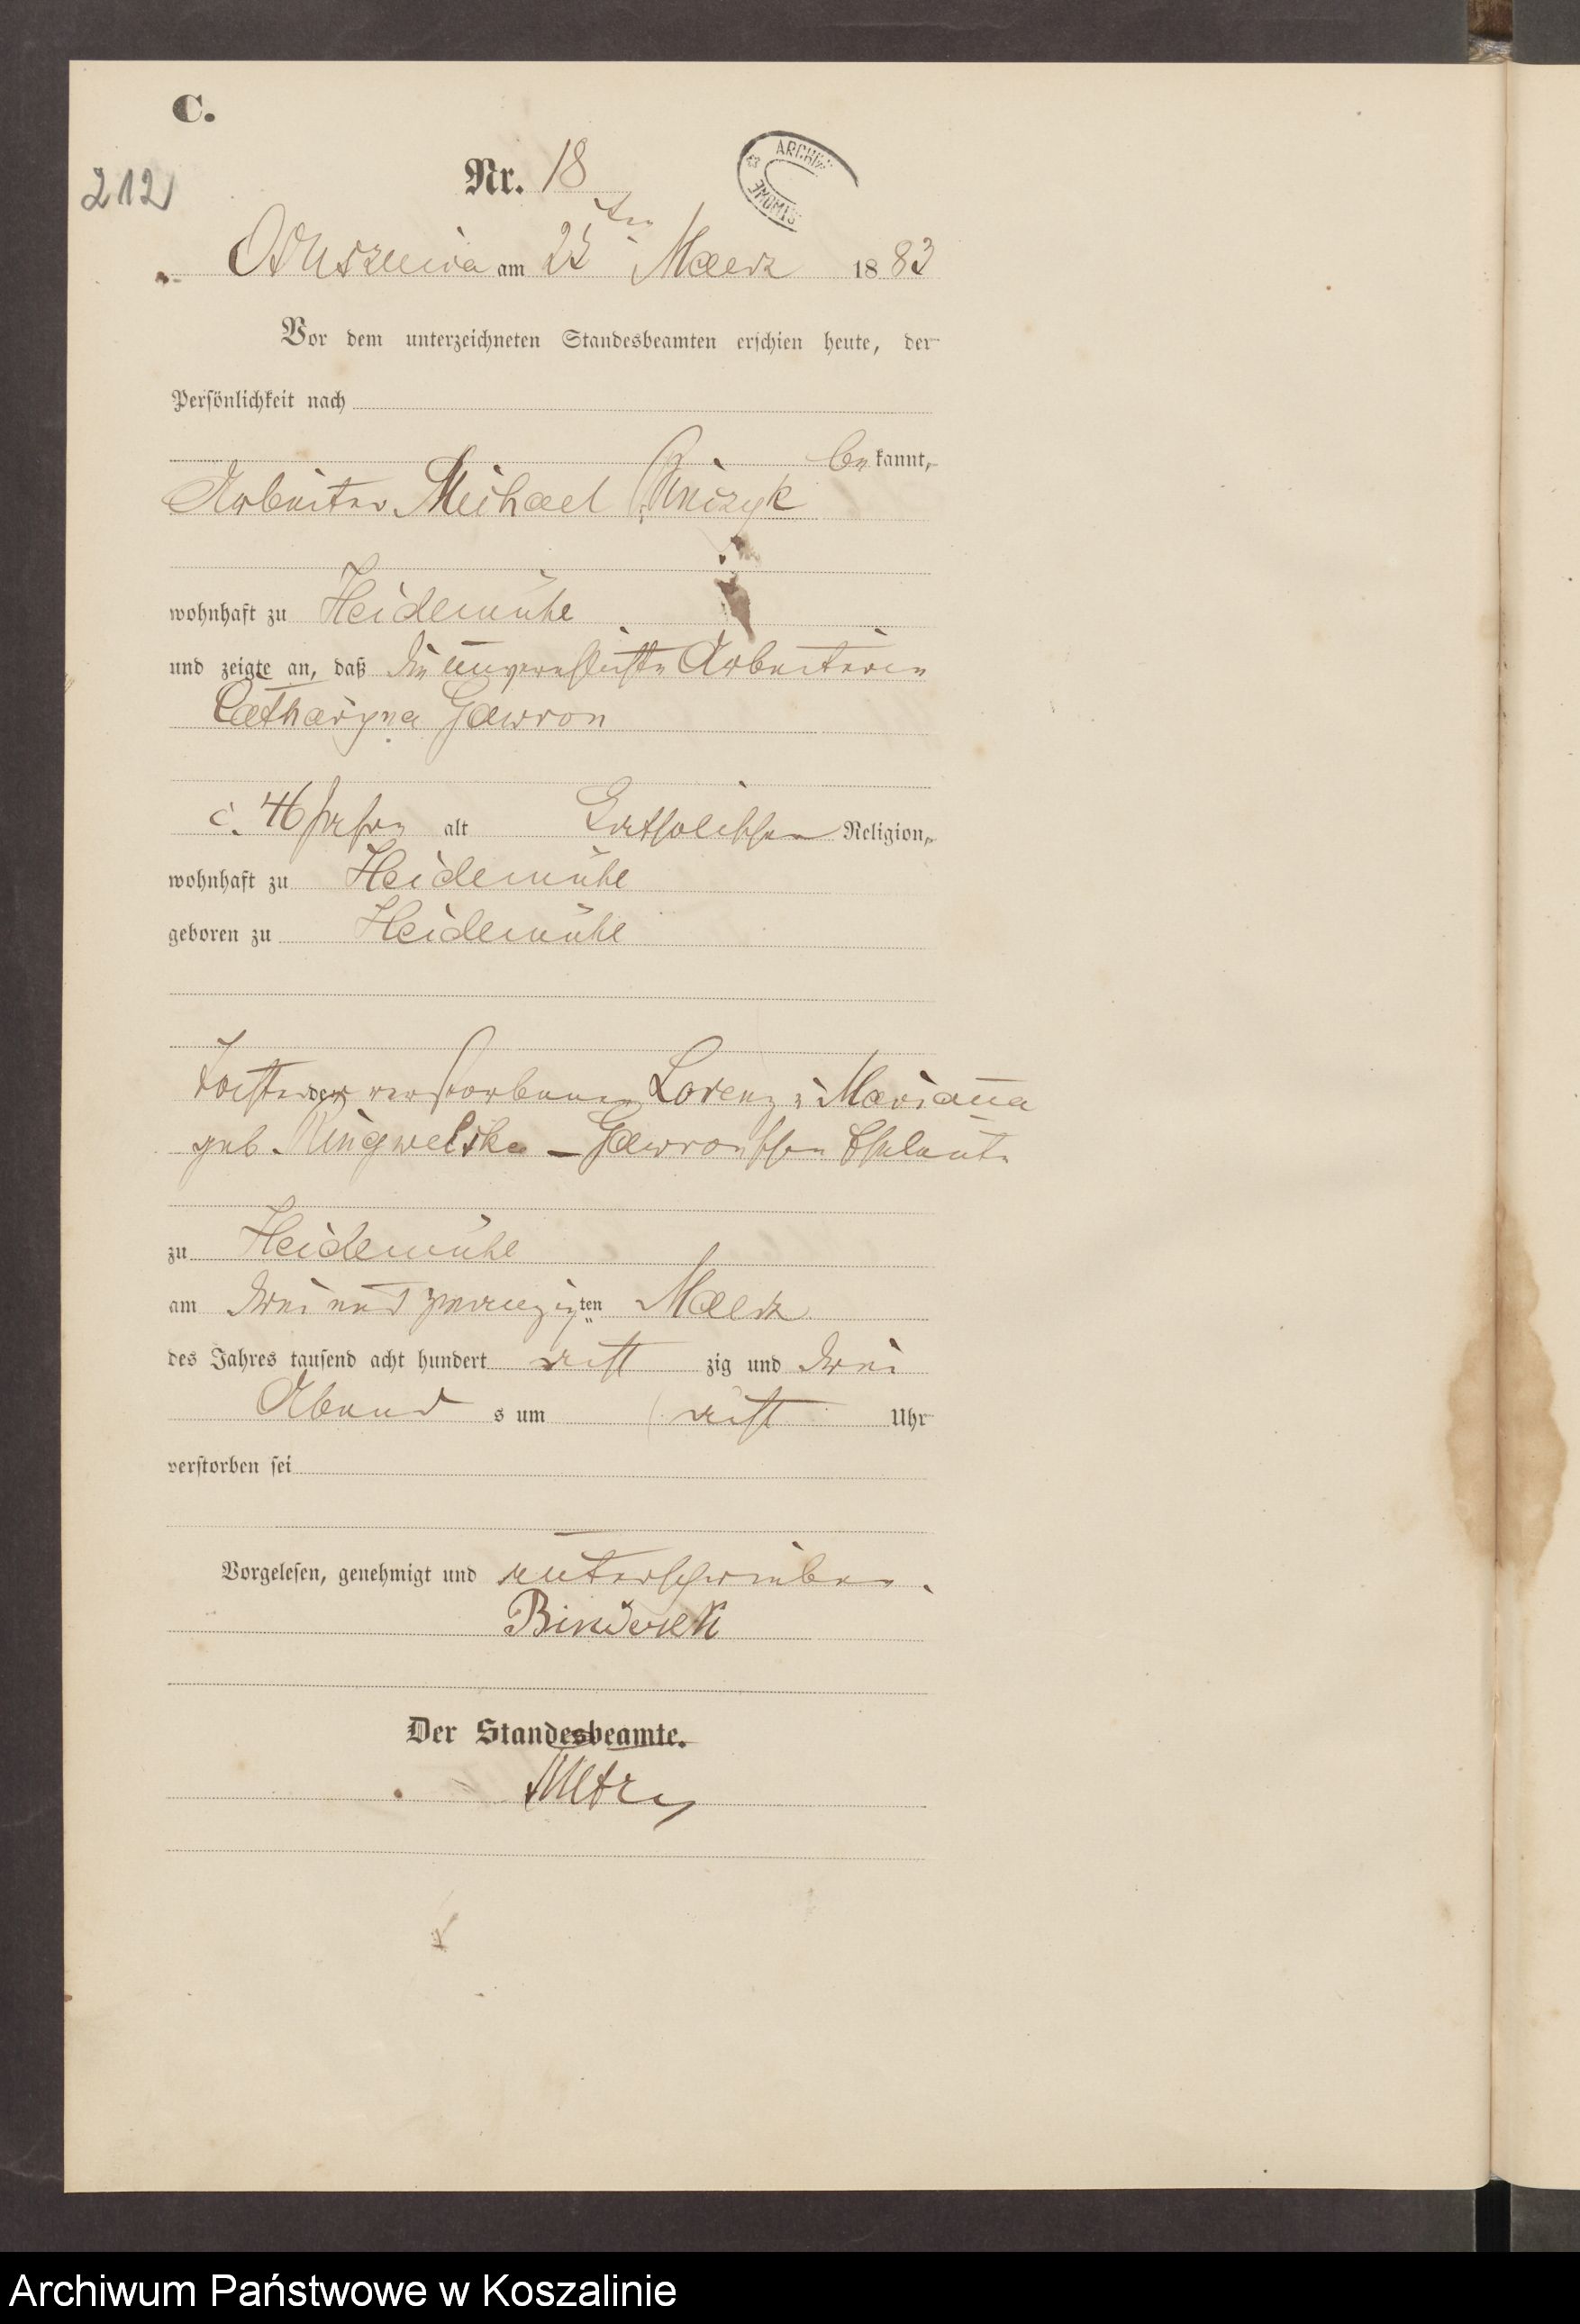 C.
212
Nr. 18
ARCHIW
am 25 ten Maerz 1883
Vor dem unterzeichneten Standesbeamten erschien heute, der
Persönlichkeit nach
be kannt,
Arbeiter Michael
wohnhaft zu Heidemühl
und zeigte an, daß die unverehelichte Arbeiterin
Catharyna Gawron
c. 46 Jahre alt katholischer Religion,
wohnhaft zu Heidemühl
geboren zu Heidemühl
Tochter der verstorbenen Lorenz u Marianna
geb. Gawronschen Eheleute
zu Heidemühl
am drei und zwanzig ten Maerz
des Jahres tausend acht hundert acht zig und drei
Abend s um acht Uhr
verstorben sei
Vorgelesen, genehmigt und unterschrieben.
Der Standesbeamte.
Archiwum Państwowe w Koszalinie